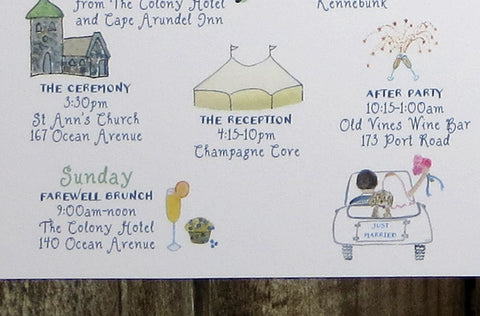 from The Colony Hotel
and Cape Arundel Inn
Kennebunk
THE CEREMONY
3:30pm
St Ann's Church
167 Ocean Avenue
THE RECEPTION
4:15-10pm
Champagne Cove
AFTER PARTY
10:15-1:00am
Old Vines Wine Bar
173 Port Road
Sunday
FAREWELL BRUNCH
9:00am-noon
The Colony Hotel
140 Ocean Avenue
JUST
MARRIED